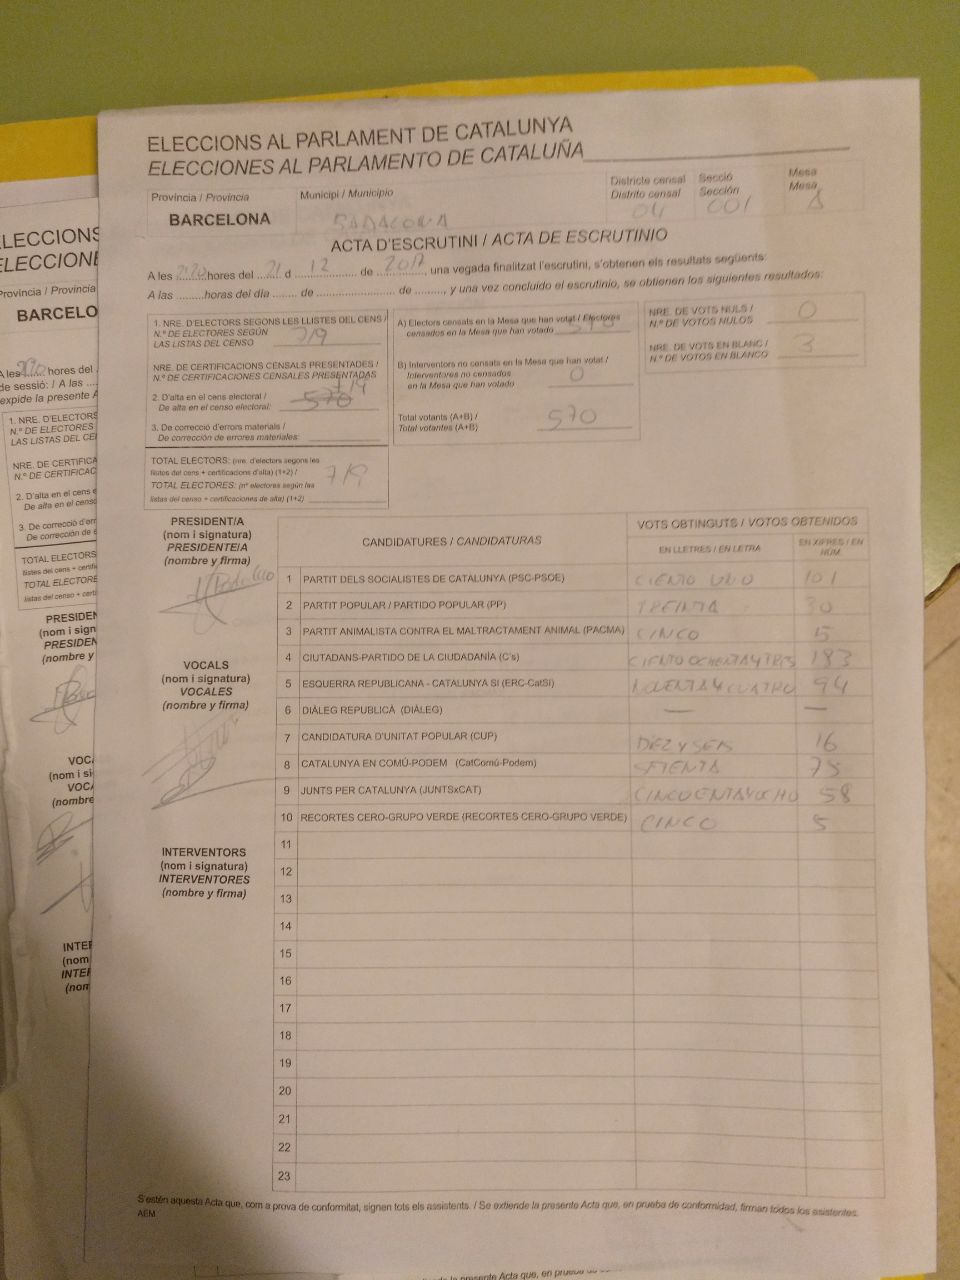 ELECCIONS AL PARLAMENT DE CATALUNYA
ELECCIONES AL PARLAMENTO DE CATALUÑA
Província / Provincia
BARCELONA
Municipi / Municipio
BADALONA
Districte censal
Distrito censal
04
Secció
Sección
001
Mesa
Mesa
A
ACTA D'ESCRUTINI / ACTA DE ESCRUTINIO
A les hores del 21 d 12 de 2017, una vegada finalitzat l'escrutini, s'obtenen els resultats següents:
A las ........horas del día ....... de ................ de ........, y una vez concluido el escrutinio, se obtienen los siguientes resultados:
1. NRE. D'ELECTORS SEGONS LES LLISTES DEL CENS /
N.º DE ELECTORES SEGÚN
LAS LISTAS DEL CENSO 719
NRE. DE CERTIFICACIONS CENSALS PRESENTADES /
N.º DE CERTIFICACIONES CENSALES PRESENTADAS
719
2. D'alta en el cens electoral /
De alta en el censo electoral: 570
3. De correcció d'errors materials /
De corrección de errores materiales:
TOTAL ELECTORS: (nre. d'electors segons les
llistes del cens + certificacions d'alta) (1+2) /
TOTAL ELECTORES: (nº electores según las
listas del censo + certificaciones de alta) (1+2)
719
A) Electors censats en la Mesa que han votat / Electores
censados en la Mesa que han votado 570
B) Interventors no censats en la Mesa que han votat /
Interventores no censados
en la Mesa que han votado 0
Total votants (A+B) /
Total votantes (A+B) 570
NRE. DE VOTS NULS /
N.º DE VOTOS NULOS 0
NRE. DE VOTS EN BLANC /
N.º DE VOTOS EN BLANCO 3
PRESIDENT/A
(nom i signatura)
PRESIDENTE/A
(nombre y firma)
VOCALS
(nom i signatura)
VOCALES
(nombre y firma)
INTERVENTORS
(nom i signatura)
INTERVENTORES
(nombre y firma)
CANDIDATURES / CANDIDATURAS
VOTS OBTINGUTS / VOTOS OBTENIDOS
EN LLETRES / EN LETRA
EN XIFRES / EN NÚM.
1 PARTIT DELS SOCIALISTES DE CATALUNYA (PSC-PSOE) CIENTO UNO 101
2 PARTIT POPULAR / PARTIDO POPULAR (PP) TREINTA 30
3 PARTIT ANIMALISTA CONTRA EL MALTRACTAMENT ANIMAL (PACMA) CINCO 5
4 CIUTADANS-PARTIDO DE LA CIUDADANÍA (C's) CIENTO OCHENTA Y TRES 183
5 ESQUERRA REPUBLICANA - CATALUNYA SÍ (ERC-CatSí) NOVENTA Y CUATRO 94
6 DIÀLEG REPUBLICÀ (DIÀLEG) — —
7 CANDIDATURA D'UNITAT POPULAR (CUP) DIEZ Y SEIS 16
8 CATALUNYA EN COMÚ-PODEM (CatComú-Podem) SETENTA 75
9 JUNTS PER CATALUNYA (JUNTSxCAT) CINCUENTA Y OCHO 58
10 RECORTES CERO-GRUPO VERDE (RECORTES CERO-GRUPO VERDE) CINCO 5
11
12
13
14
15
16
17
18
19
20
21
22
23
S'estén aquesta Acta que, com a prova de conformitat, signen tots els assistents. / Se extiende la presente Acta que, en prueba de conformidad, firman todos los asistentes.
AEM